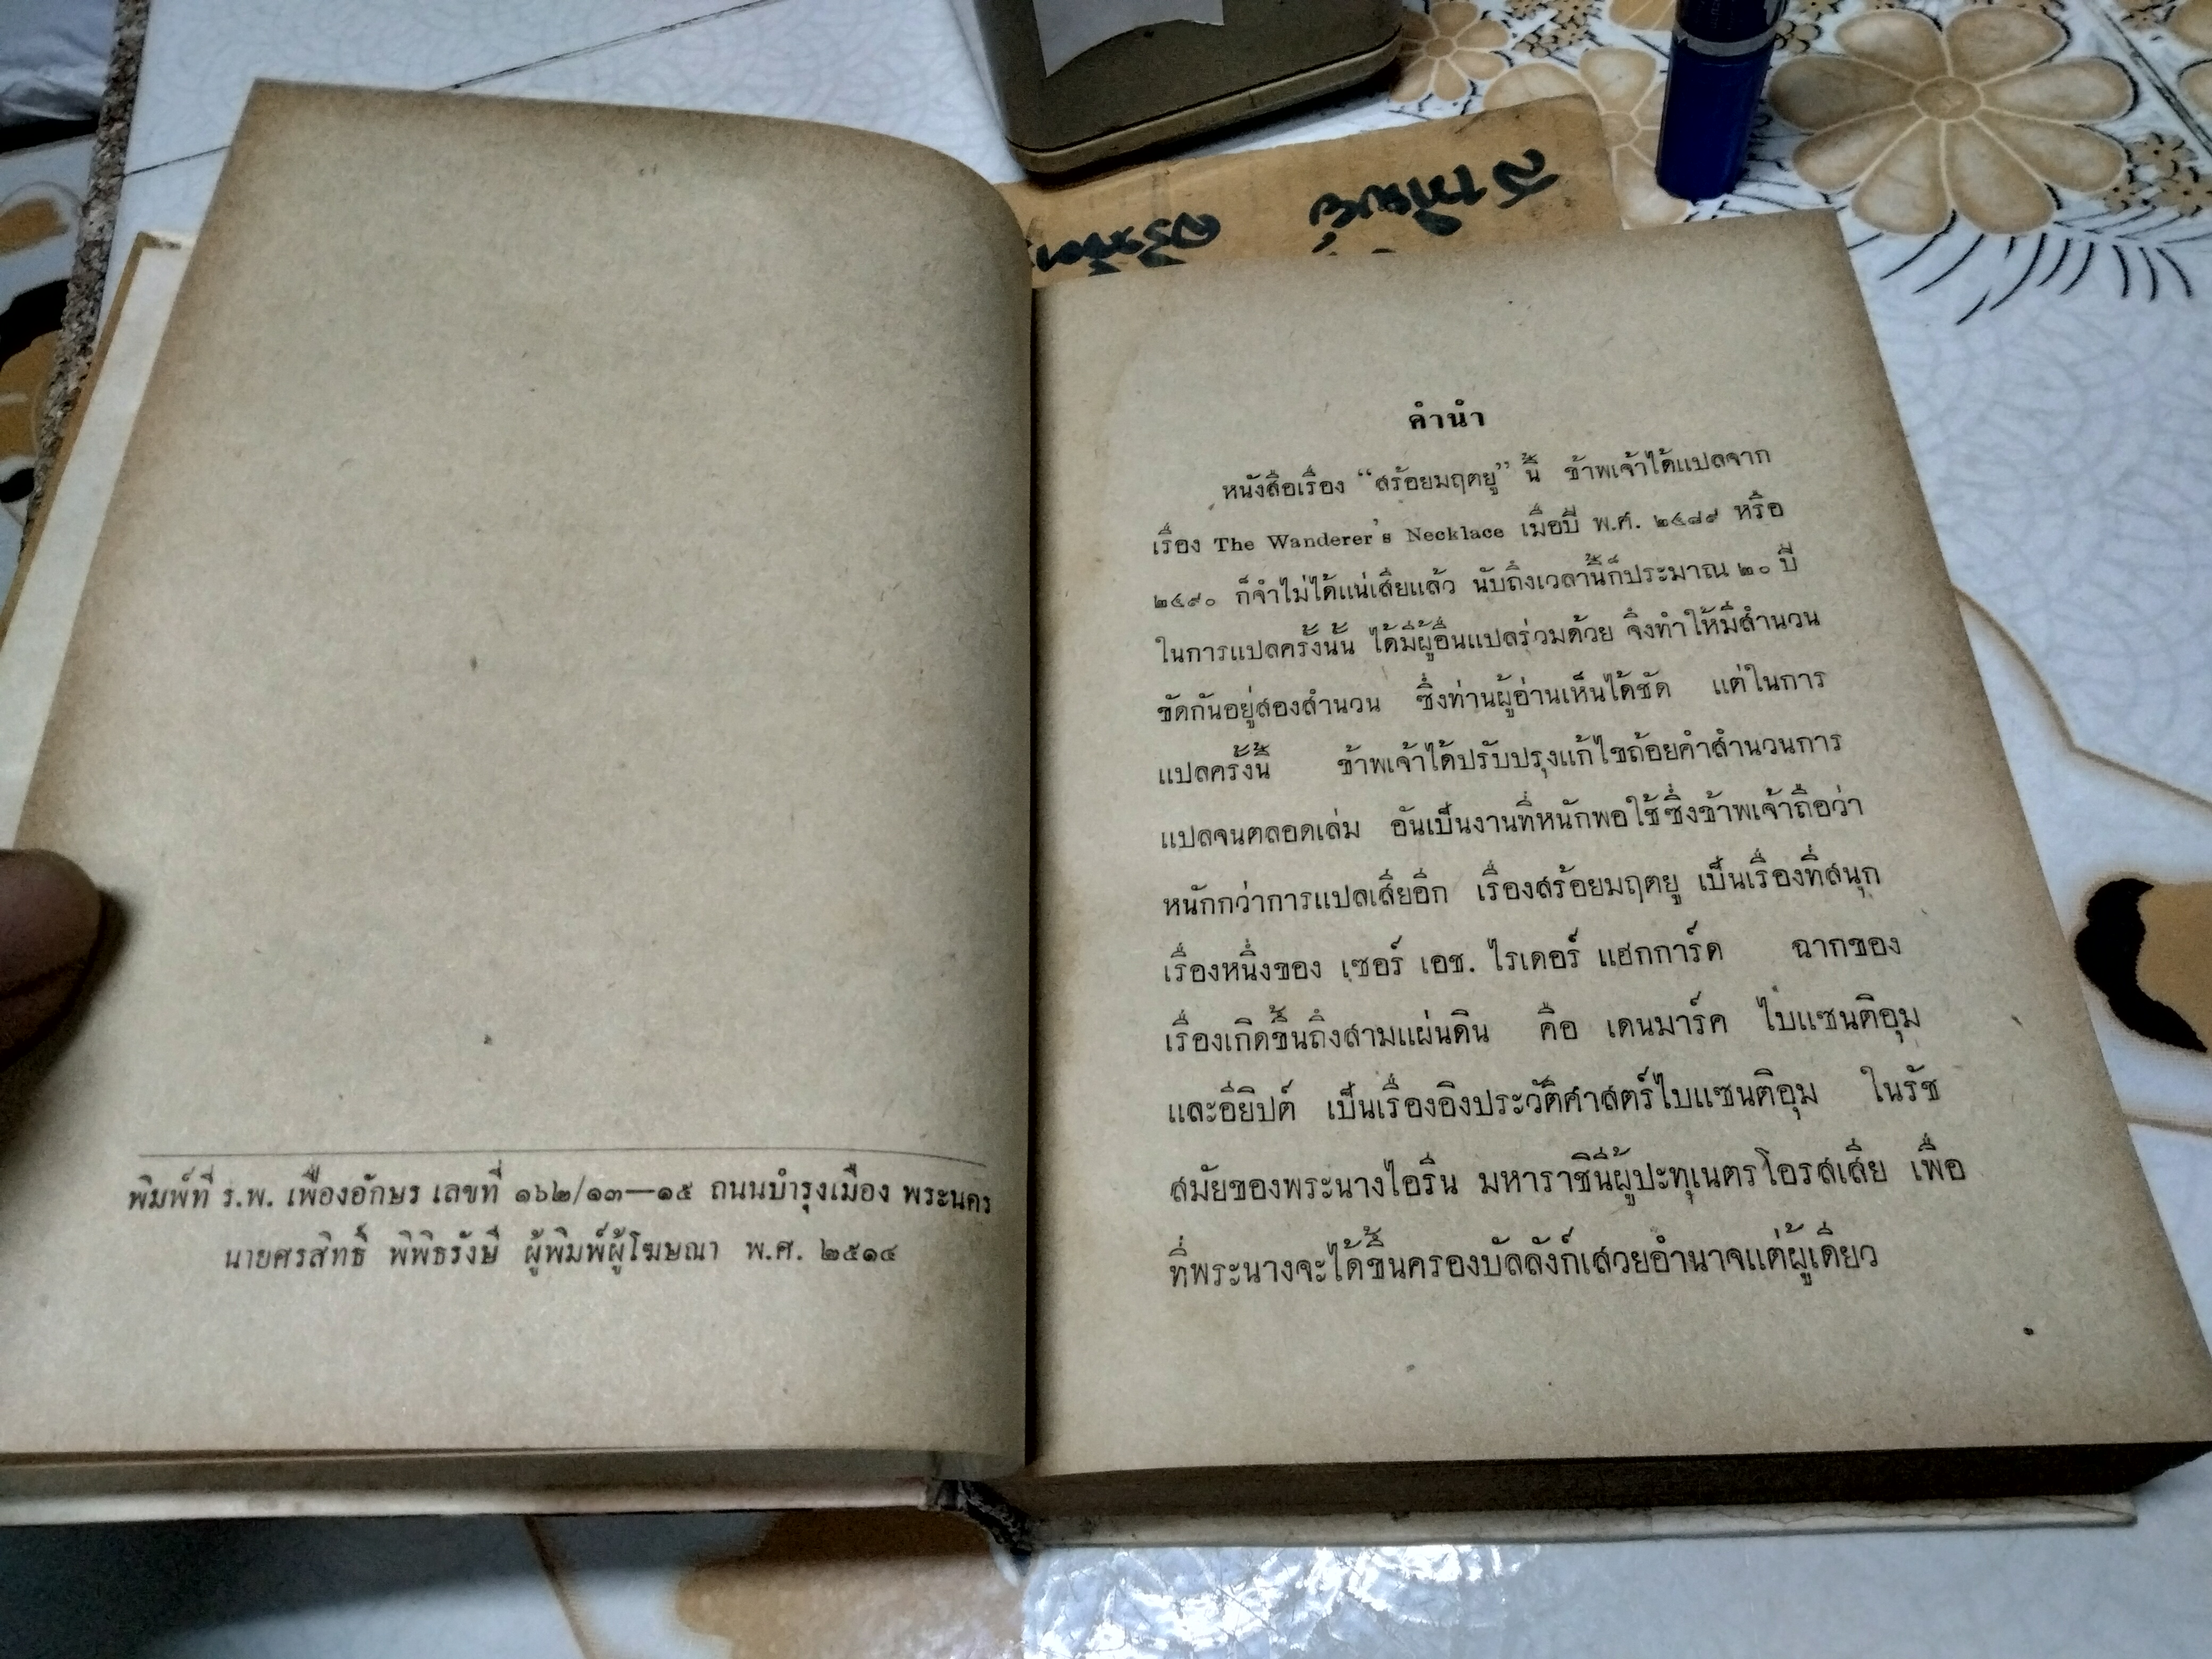 พิมพ์ที่ ร.พ. เฟื่องอักษร เลขที่ ๑๖๒/๑๓—๑๕ ถนนบำรุงเมือง พระนคร
นายศรสิทธิ์ พิพิธรังษี ผู้พิมพ์ผู้โฆษณา พ.ศ. ๒๕๑๔
คำนำ
หนังสือเรื่อง “สร้อยมฤตยู” นี้ ข้าพเจ้าได้แปลจาก
เรื่อง The Wanderer's Necklace เมื่อปี พ.ศ. ๒๔๘๙ หรือ
๒๔๙๐ ก็จำไม่ได้แน่เสียแล้ว นับถึงเวลานี้ก็ประมาณ ๒๐ ปี
ในการแปลครั้งนั้น ได้มีผู้อื่นแปลร่วมด้วย จึงทำให้มีสำนวน
ขัดกันอยู่สองสำนวน ซึ่งท่านผู้อ่านเห็นได้ชัด แต่ในการ
แปลครั้งนี้ ข้าพเจ้าได้ปรับปรุงแก้ไขถ้อยคำสำนวนการ
แปลจนตลอดเล่ม อันเป็นงานที่หนักพอใช้ซึ่งข้าพเจ้าถือว่า
หนักกว่าการแปลเสียอีก เรื่องสร้อยมฤตยู เป็นเรื่องที่สนุก
เรื่องหนึ่งของ เซอร์ เอช. ไรเดอร์ แฮกการ์ด ฉากของ
เรื่องเกิดขึ้นถึงสามแผ่นดิน คือ เดนมาร์ค ไบแซนติอุม
และอียิปต์ เป็นเรื่องอิงประวัติศาสตร์ไบแซนติอุม ในรัช
สมัยของพระนางไอรีน มหาราชินีผู้ปะทุเนตรโอรสเสีย เพื่อ
ที่พระนางจะได้ขึ้นครองบัลลังก์เสวยอำนาจแต่ผู้เดียว